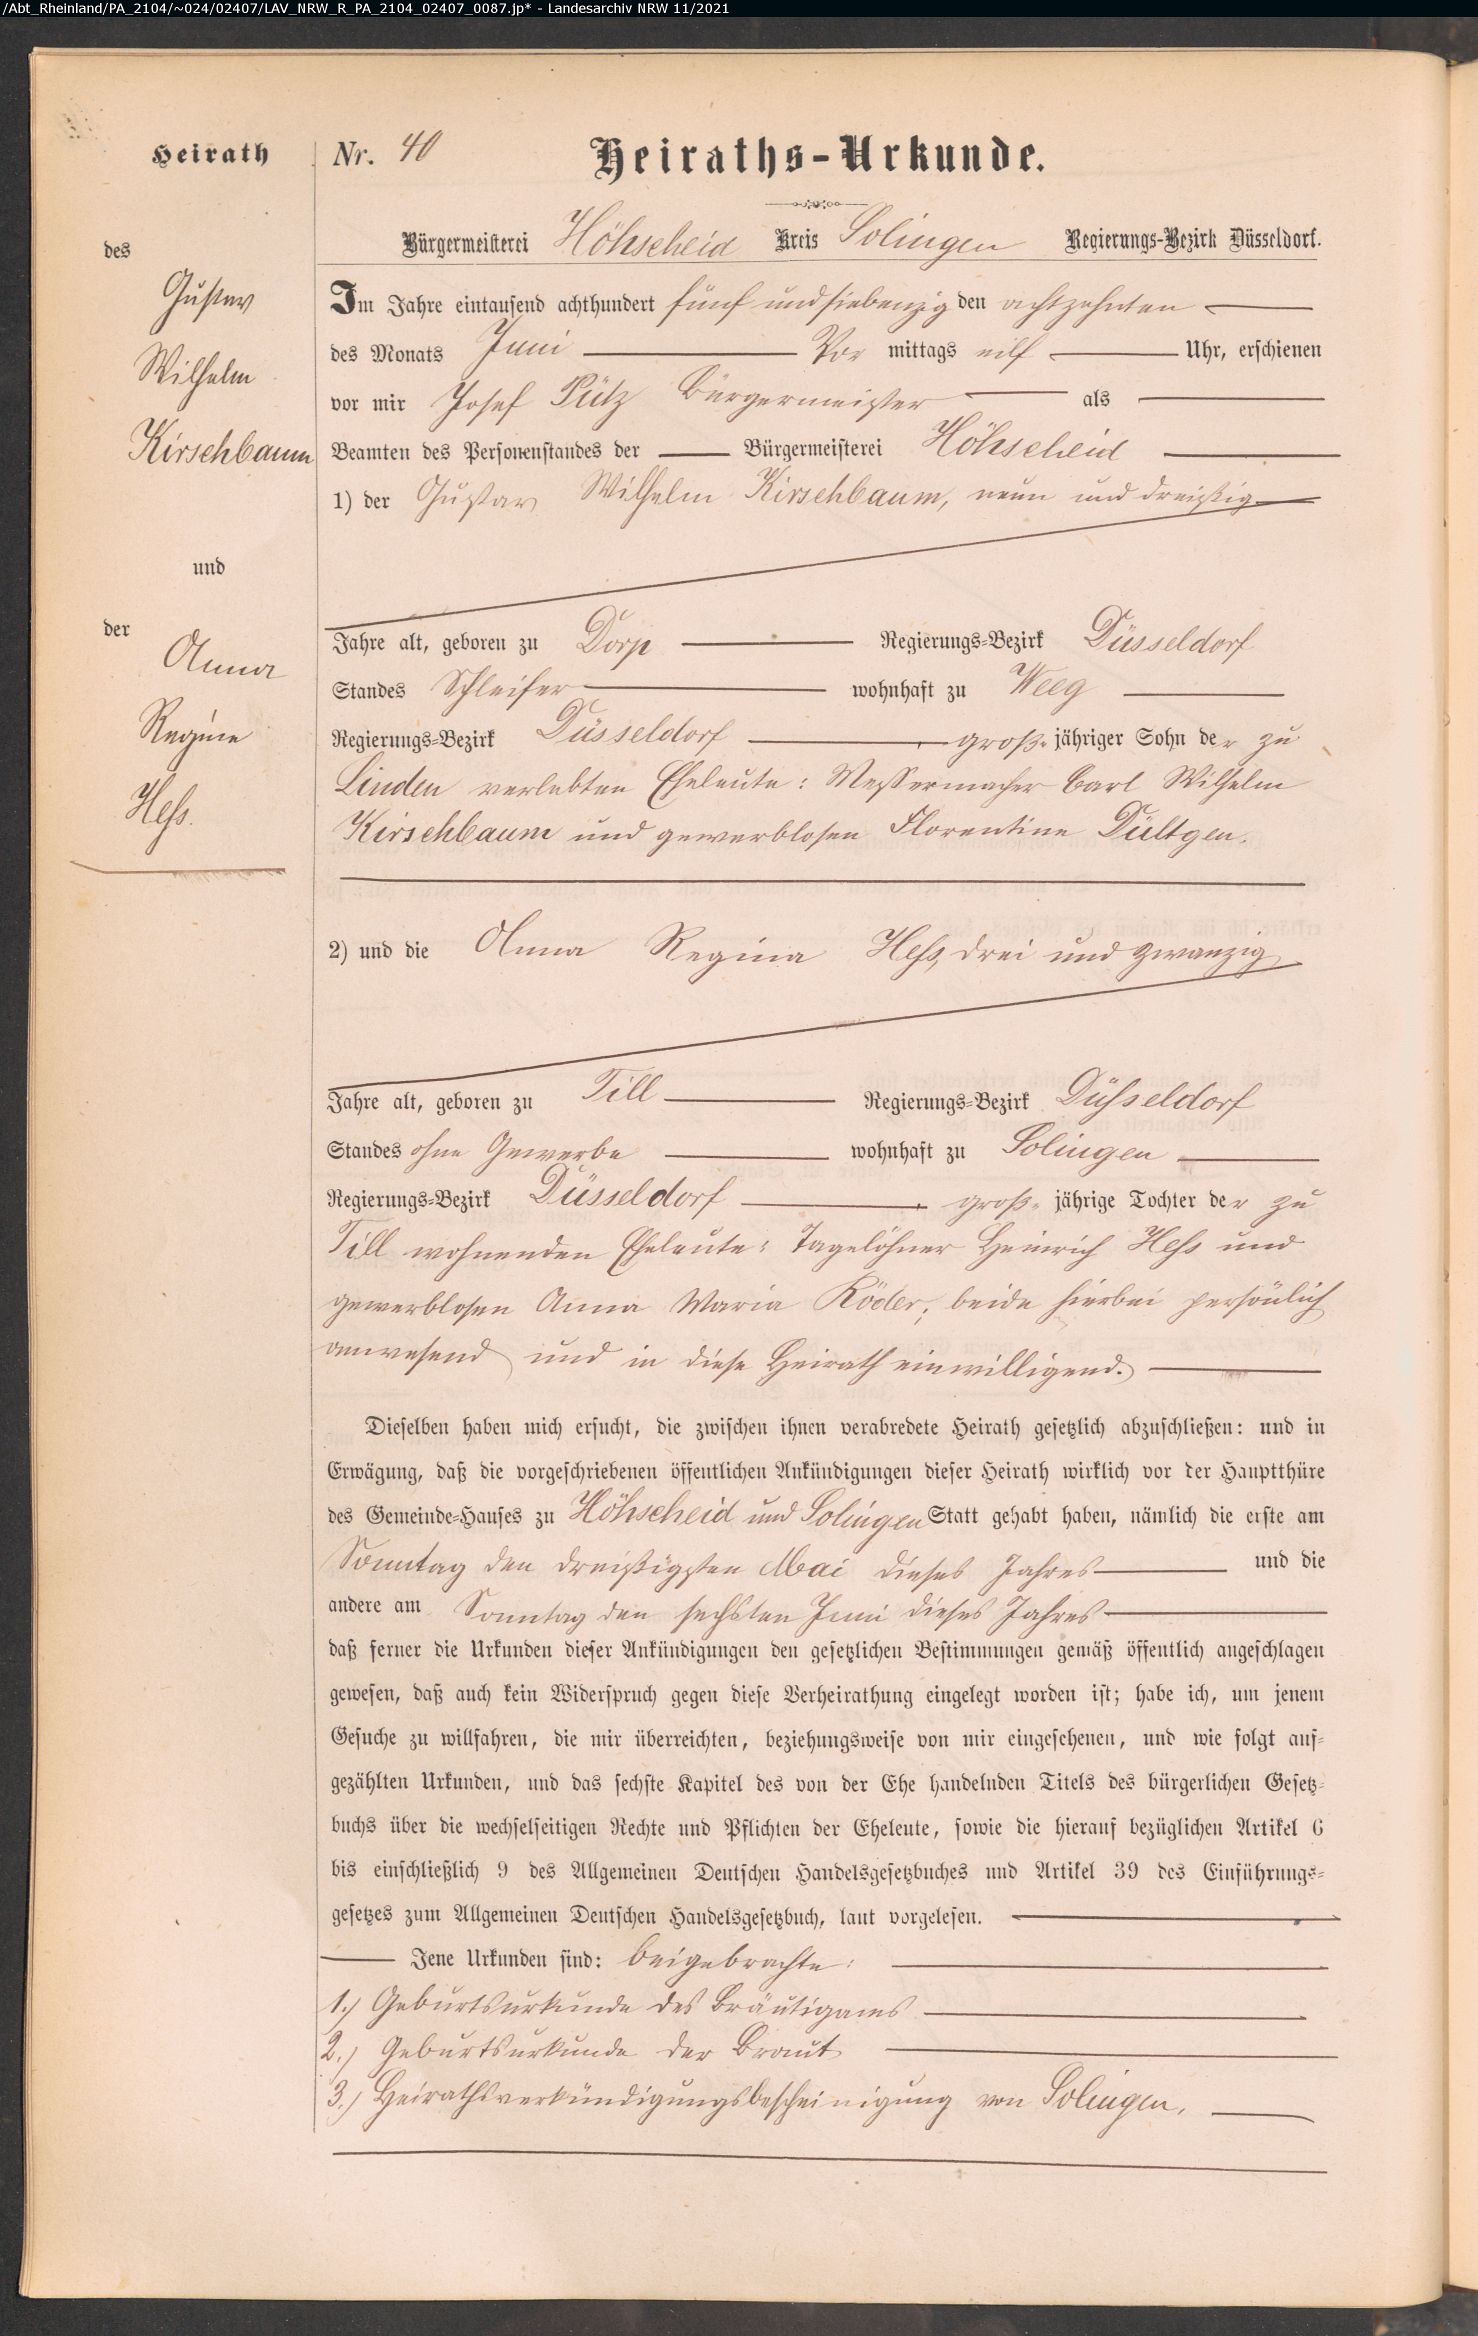 /Abt_Rheinland/PA_2104/~024/02407/LAV_NRW_R_PA_2104_02407_0087.jp* - Landesarchiv NRW 11/2021
Heirath
des
Gustav
Wilhelm
Kirschbaum
und
der
Anna
Regina
Heß.
Nr. 40 Heiraths-Urkunde.
Bürgermeisterei Höhscheid Kreis Solingen Regierungs-Bezirk Düsseldorf.
Im Jahre eintausend achthundert fünf und siebenzig den achtzehnten
des Monats Juni Vor mittags eilf Uhr, erschienen
vor mir Josef Pütz Bürgermeister als
Beamten des Personenstandes der Bürgermeisterei Höhscheid
1) der Gustav Wilhelm Kirschbaum, neun und dreißig
Jahre alt, geboren zu Dorp Regierungs-Bezirk Düsseldorf
Standes Schleifer wohnhaft zu Weeg
Regierungs-Bezirk Düsseldorf groß- jähriger Sohn der zu
Linden verlebten Eheleute: Messermacher Carl Wilhelm
Kirschbaum und gewerblosen Florentine Dültgen.
2) und die Anna Regina Heß, drei und zwanzig
Jahre alt, geboren zu Till Regierungs-Bezirk Düsseldorf
Standes ohne Gewerbe wohnhaft zu Solingen
Regierungs-Bezirk Düsseldorf groß- jährige Tochter der zu
Till wohnenden Eheleute: Tagelöhner Heinrich Heß und
gewerblosen Anna Maria Röder, beide hierbei persönlich
anwesend und in diese Heirath einwilligend.
Dieselben haben mich ersucht, die zwischen ihnen verabredete Heirath gesetzlich abzuschließen: und in
Erwägung, daß die vorgeschriebenen öffentlichen Ankündigungen dieser Heirath wirklich vor der Hauptthüre
des Gemeinde-Hauses zu Höhscheid und Solingen Statt gehabt haben, nämlich die erste am
Sonntag den dreißigsten Mai dieses Jahres und die
andere am Sonntag den sechsten Juni dieses Jahres
daß ferner die Urkunden dieser Ankündigungen den gesetzlichen Bestimmungen gemäß öffentlich angeschlagen
gewesen, daß auch kein Widerspruch gegen diese Verheirathung eingelegt worden ist; habe ich, um jenem
Gesuche zu willfahren, die mir überreichten, beziehungsweise von mir eingesehenen, und wie folgt auf-
gezählten Urkunden, und das sechste Kapitel des von der Ehe handelnden Titels des bürgerlichen Gesetz-
buchs über die wechselseitigen Rechte und Pflichten der Eheleute, sowie die hierauf bezüglichen Artikel 6
bis einschließlich 9 des Allgemeinen Deutschen Handelsgesetzbuches und Artikel 39 des Einführungs-
gesetzes zum Allgemeinen Deutschen Handelsgesetzbuch, laut vorgelesen.
Jene Urkunden sind: beigebrachte:
1.) Geburtsurkunde des Bräutigams
2.) Geburtsurkunde der Braut
3.) Heirathsverkündigungsbescheinigung von Solingen.